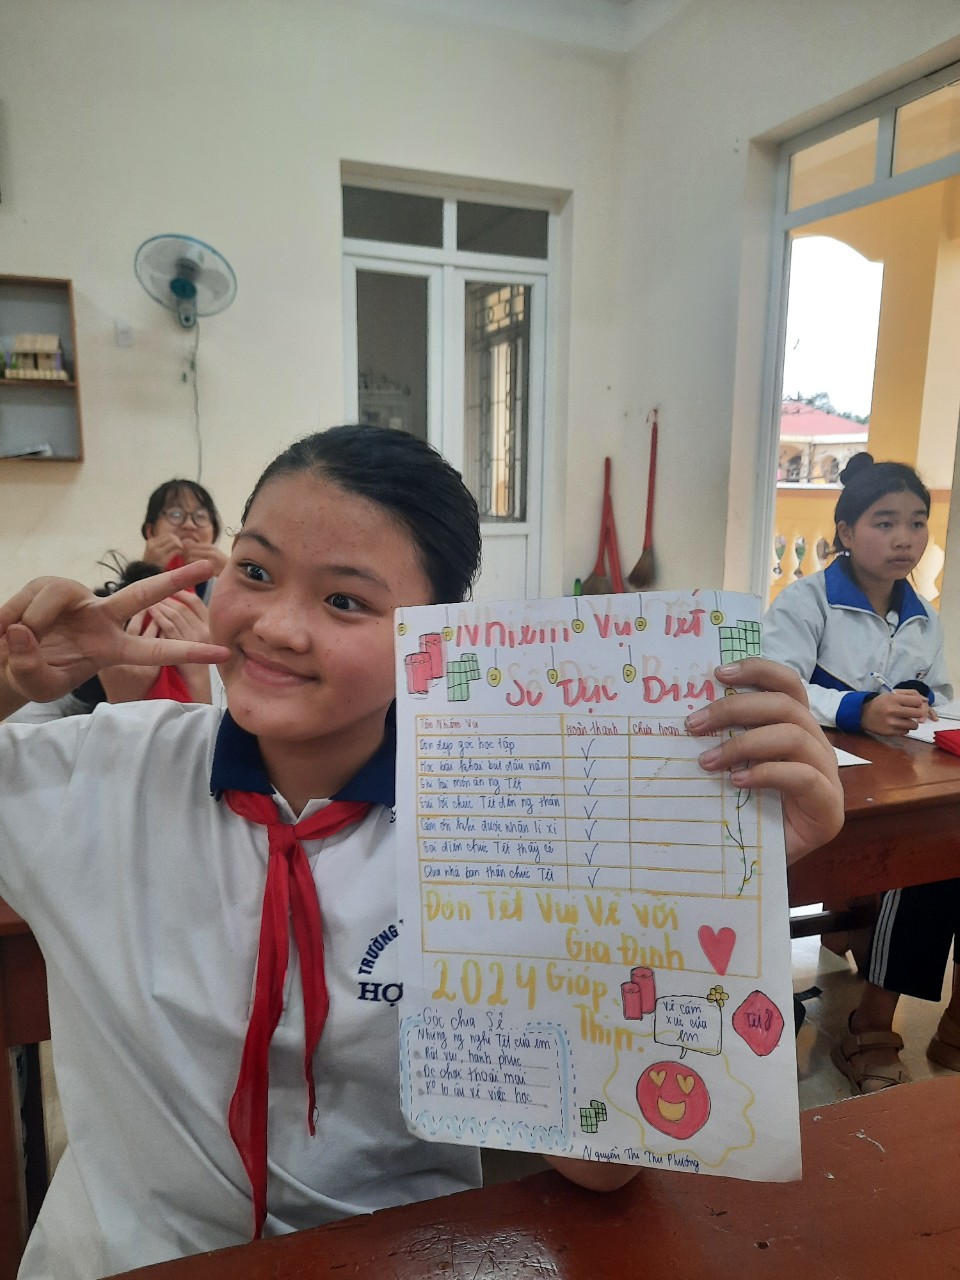 Nhiệm Vụ Tết
Sô Đặc Biệt
Tên Nhiệm Vụ
Hoàn thành
Chưa hoàn
Dọn dẹp góc học tập
Học bài khai bút đầu năm
Ghi lại món ăn ng Tết
Gửi lời chúc Tết đến ng thân
Cảm ơn khi được nhận lì xì
Gọi điện chúc Tết thầy cô
Qua nhà bạn thân chúc Tết
Đón Tết Vui Vẻ với
Gia Đình
2024 Giáp
Thìn.
Góc chia sẻ
Những ng nghỉ Tết của em
Rất vui, hạnh phúc
Đc chơi thoải mái
Ko lo âu về việc học
Vẽ cảm
xúc của
em
Tết
Nguyễn Thị Thu Phương
TRƯỜNG
HỢ